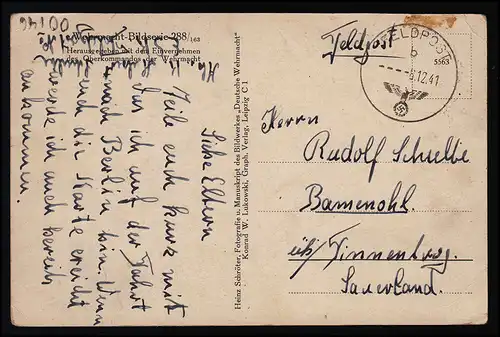 Wehrmacht-Bildserie 288/163
Herausgegeben mit dem Einvernehmen
des Oberkommandos der Wehrmacht
Liebe Eltern
Teile euch kurz mit
das ich auf der Fahrt
nach Berlin bin. Wenn
euch die Karte erreicht
werde ich auch bereits
ankommen.
Heinz Schröter, Fotografie u. Manuskript des Bildwerkes „Deutsche Wehrmacht"
Konrad W. Lukowski, Graph. Verlag, Leipzig C 1
Feldpost
FELDPOST
b
5.12.41
5563
Herrn
Rudolf
Bamenohl
üb/ Finnentrog.
Sauerland.